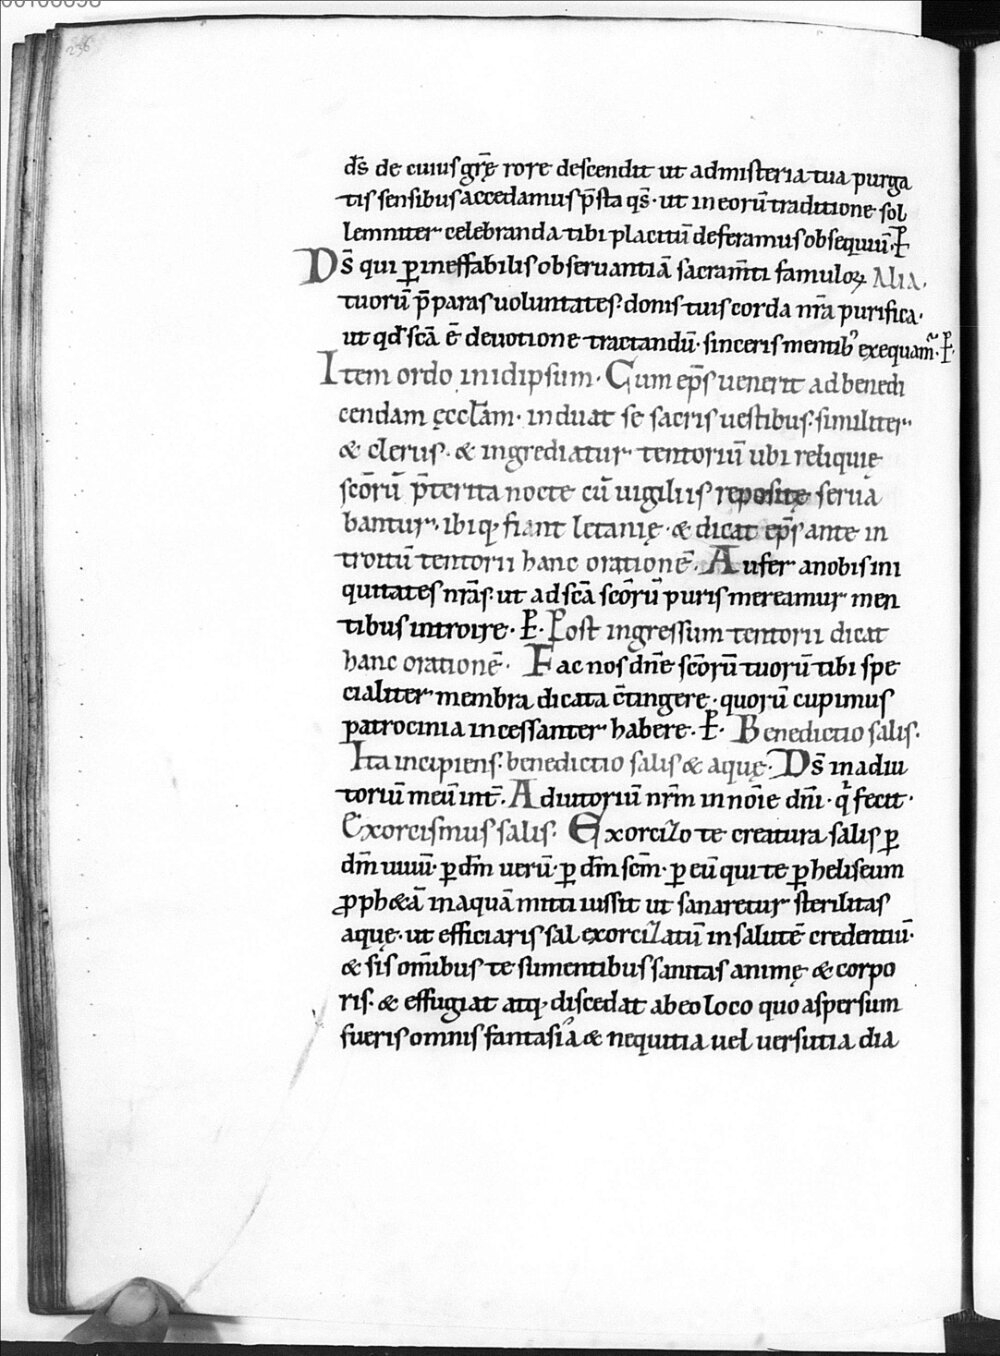 236
ds̄ de cuius gr̄ę rore descendit ut ad misteria tua purga
tis sensibus accedamus p̄sta qs̄· ut in eorū traditione sol
lemniter celebranda tibi placitū deferamus obsequiū· ꝑ
Ds̄ qui ꝑ ineffabilis obseruantiā sacram̄ti famuloꝝ Alia·
tuorū p̄paras uoluntates· donis tuis corda nr̄a purifica·
ut qd̄ scā ē deuotione tractandū· sinceris mentibꝰ exequam̄· ꝑ·
Item ordo in idipsum· Cum ep̄s uenerit ad benedi
cendam ęccłam· induat se sacris uestibus· similiter
& clerus· & ingrediatur tentoriū ubi reliquię
scōrū p̄terita nocte cū uigiliis repositę serua
bantur· ibiq; fiant letanię· & dicat ep̄s ante in
troitū tentorii hanc orationē· Aufer a nobis ini
quitates nr̄as· ut ad scā scōrū puris mereamur men
tibus introire· ꝑ· Post ingressum tentorii dicat
hanc orationē· Fac nos dn̄e scōrū tuorū tibi spe
cialiter membra dicata c̄tingere· quorū cupimus
patrocinia incessanter habere· ꝑ· Benedictio salis·
Ita incipiens· benedictio salis & aquę· Ds̄ in adiu
toriū meū int̄· Adiutoriū nr̄m in nōie dn̄i· q̄ fecit·
Exorcismus salis· Exorcizo te creatura salis ꝑ
dm̄ uiuū· ꝑ dm̄ uerū· ꝑ dm̄ scm̄· ꝑ eū qui te ꝑ heliseum
ꝓph&ā in aquā mitti iussit ut sanaretur sterilitas
aquę· ut efficiaris sal exorcizatū in salutē credentiū·
& sis om̄ibus te sumentibus sanitas animę & corpo
ris· & effugiat atq; discedat ab eo loco quo aspersum
fueris omnis fantasia & nequitia uel uersutia dia